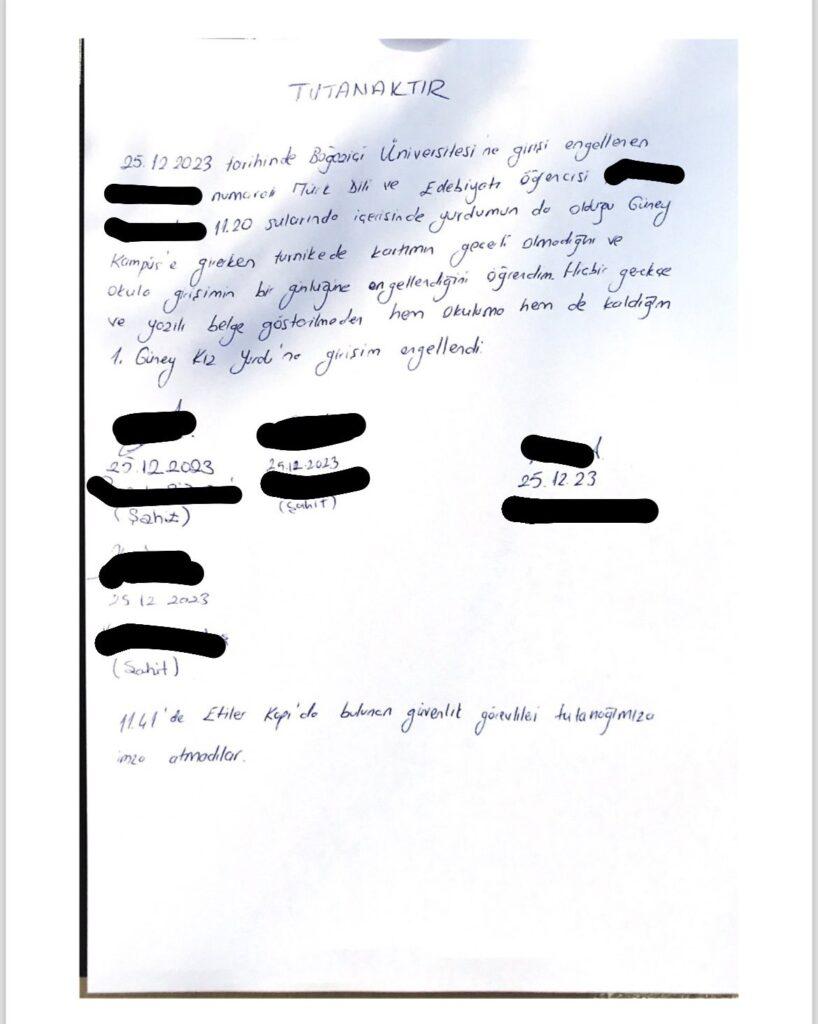 TUTANAKTIR
25.12.2023 tarihinde Boğaziçi Üniversitesi'ne girişi engellenen
numaralı Türk Dili ve Edebiyatı öğrencisi
11.20 sularında içerisinde yurdumun da olduğu Güney
Kampüs'e girerken turnikede kartımın geçerli olmadığını ve
okula girişimin bir günlüğüne engellendiğini öğrendim. Hiçbir gerekçe
ve yazılı belge gösterilmeden hem okuluma hem de kaldığım
1. Güney Kız Yurdu'na girişim engellendi.
25.12.2023 25.12.2023 25.12.23
(Şahit) (Şahit)
25.12.2023
(Şahit)
11.41'de Etiler Kapı'da bulunan güvenlik görevlileri tutanağımıza
imza atmadılar.